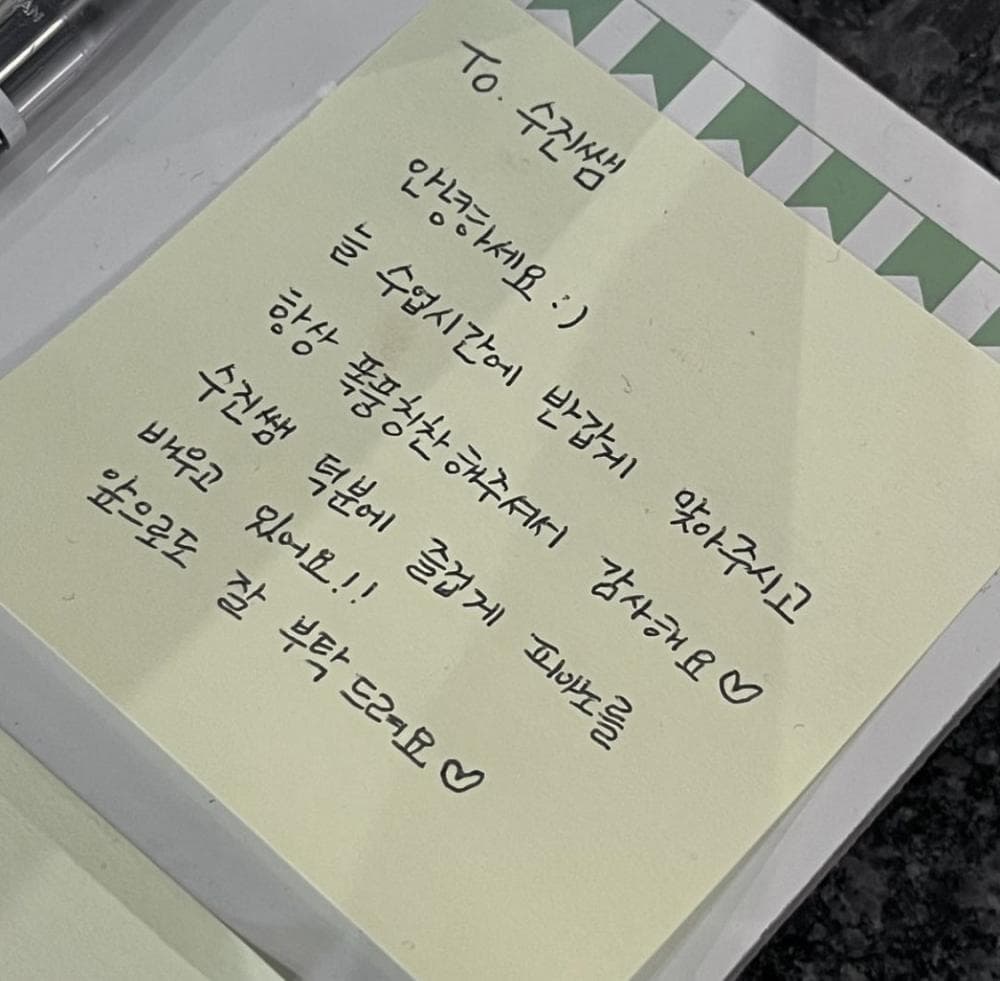 To. 수진쌤
안녕하세요 :)
늘 수업시간에 반갑게 맞아주시고
항상 폭풍칭찬해주셔서 감사해요♡
수진쌤 덕분에 즐겁게 피아노를
배우고 있어요!!
앞으로도 잘 부탁드려요♡